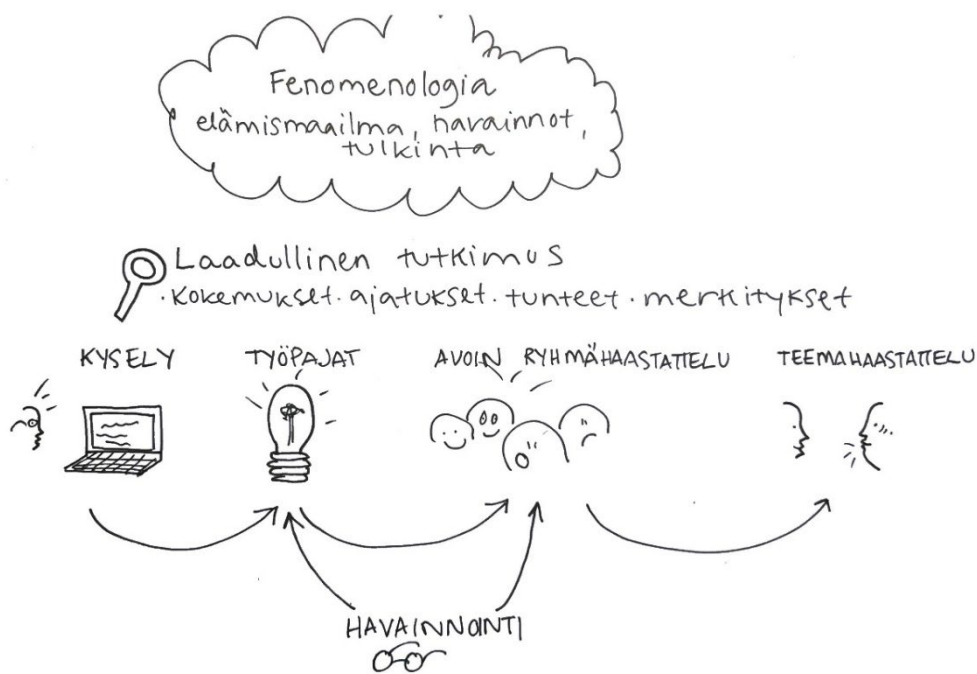 Fenomenologia
elämismaailma, havainnot,
tulkinta
Laadullinen tutkimus
· Kokemukset · ajatukset · tunteet · merkitykset
KYSELY TYÖPAJAT AVOIN RYHMÄHAASTATTELU TEEMAHAASTATTELU
HAVAINNOINTI